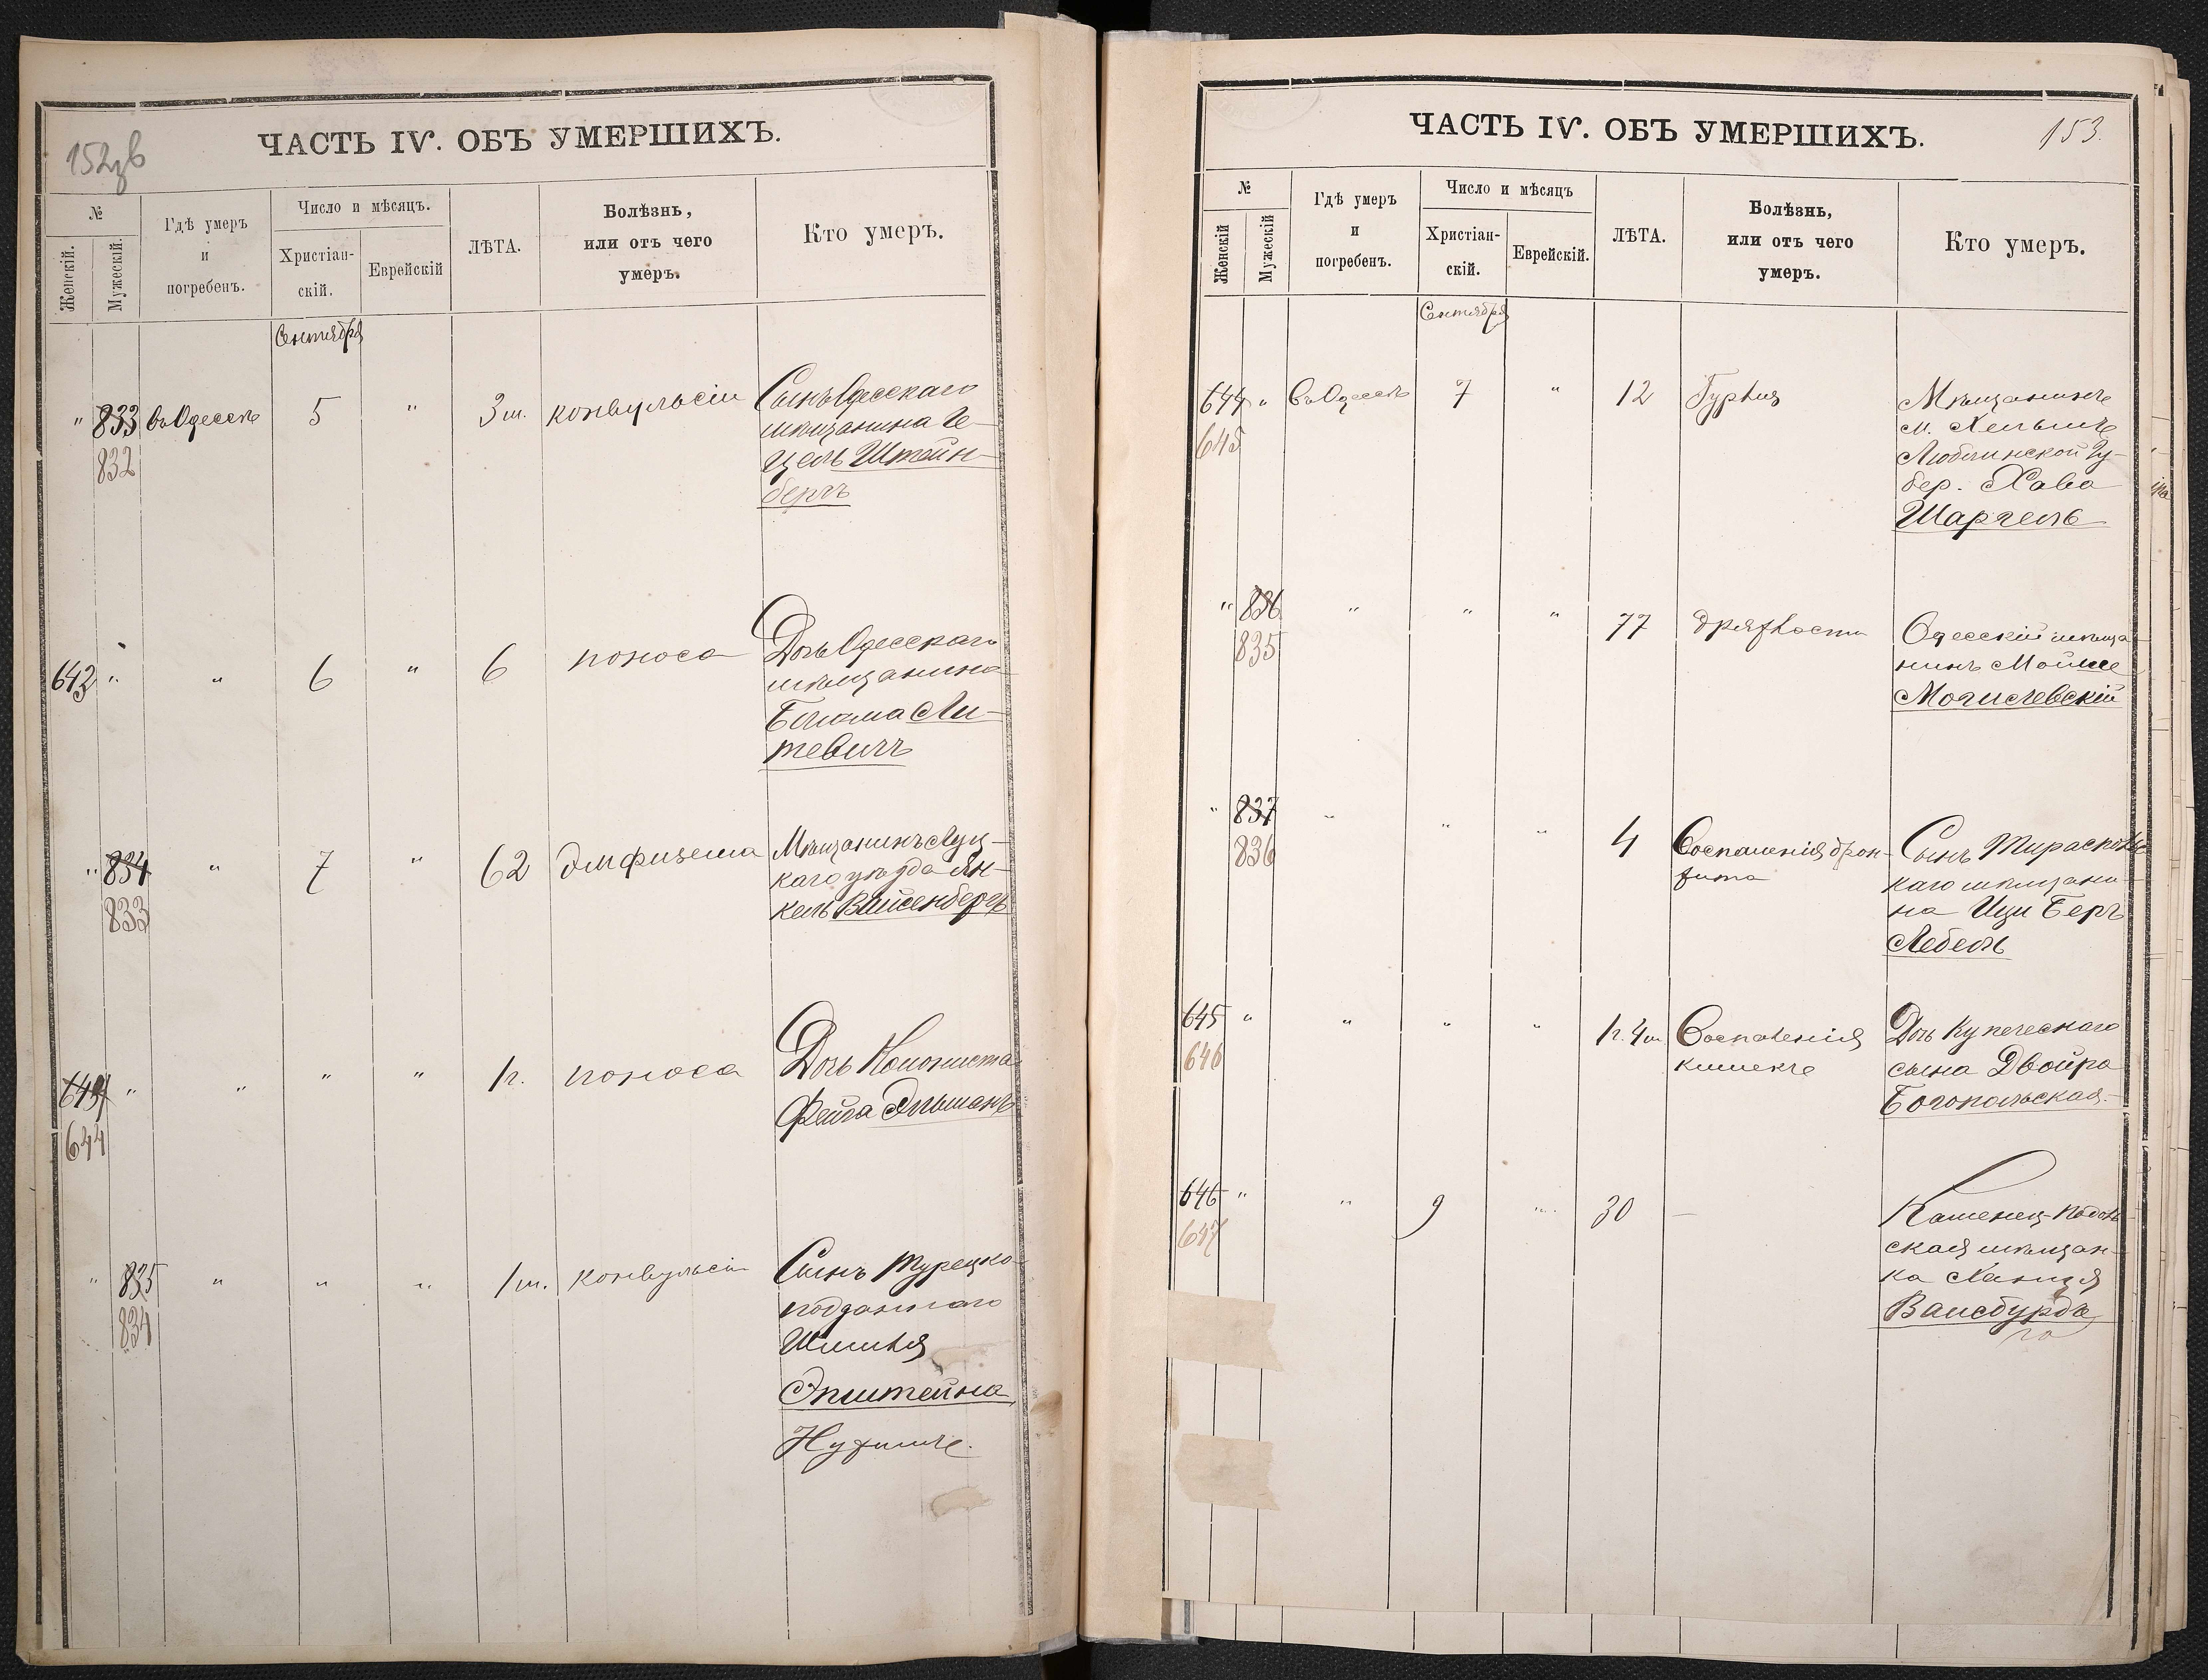 152
ЧАСТЬ IV. ОБЪ УМЕРШИХЪ.
№
Женскій.
Мужескій.
Гдѣ умеръ
и
погребенъ.
Число и мѣсяцъ.
Христіан-
скій.
Еврейскій
ЛѢТА.
Болѣзнь,
или отъ чего
умеръ.
Кто умеръ.
Сентября
" 833 въ Одессѣ 5 " 3 м. конвульсіи Сынъ Одесскаго
832
мѣщанина Ге-
цель Штейн-
бергъ
643 " " 6 " 6 поноса Дочь Одесскаго
мѣщанина
Ли-
тевичъ
" 834 " 7 " 62 Эмфизема Мѣщанинъ Луц-
833
каго уѣзда Ян-
кель Вайсенбергъ
643 " " " " 1 г. поноса Дочь Колониста
644
Фейга Эльманъ
" 835 " " " 1 м. конвульсіи Сынъ Турецко
834
подданнаго
Шмиля
Эпштейна
Нухимъ.
ЧАСТЬ IV. ОБЪ УМЕРШИХЪ.
153.
№
Женскій
Мужескій
Гдѣ умеръ
и
погребенъ.
Число и мѣсяцъ
Христіан-
скій.
Еврейскій.
ЛѢТА.
Болѣзнь,
или отъ чего
умеръ.
Кто умеръ.
Сентября
644 " въ Одессѣ 7 " 12 Мѣщанинъ
645
м. Хельмъ
Люблинской Гу-
бер. Хава
Шаргель
" 836 " " " 77 дряхлости Одесскій мѣща-
835
нинъ Мойше
Могилевскій
" 837 " " " 4 Воспаленія брон-
836
хита
Сынъ Тирасполь-
каго мѣщани-
на Ицк Беръ
Лебель
645 " " " " 1 г. 4 м. Воспаленія
646
кишекъ
Дочь Купеческаго
сына Двойра
Богопольская.
646 " " 9 " 30 — Каменец-Подоль-
647
ская мѣщан-
ка Ханця
Вайсбурдъ